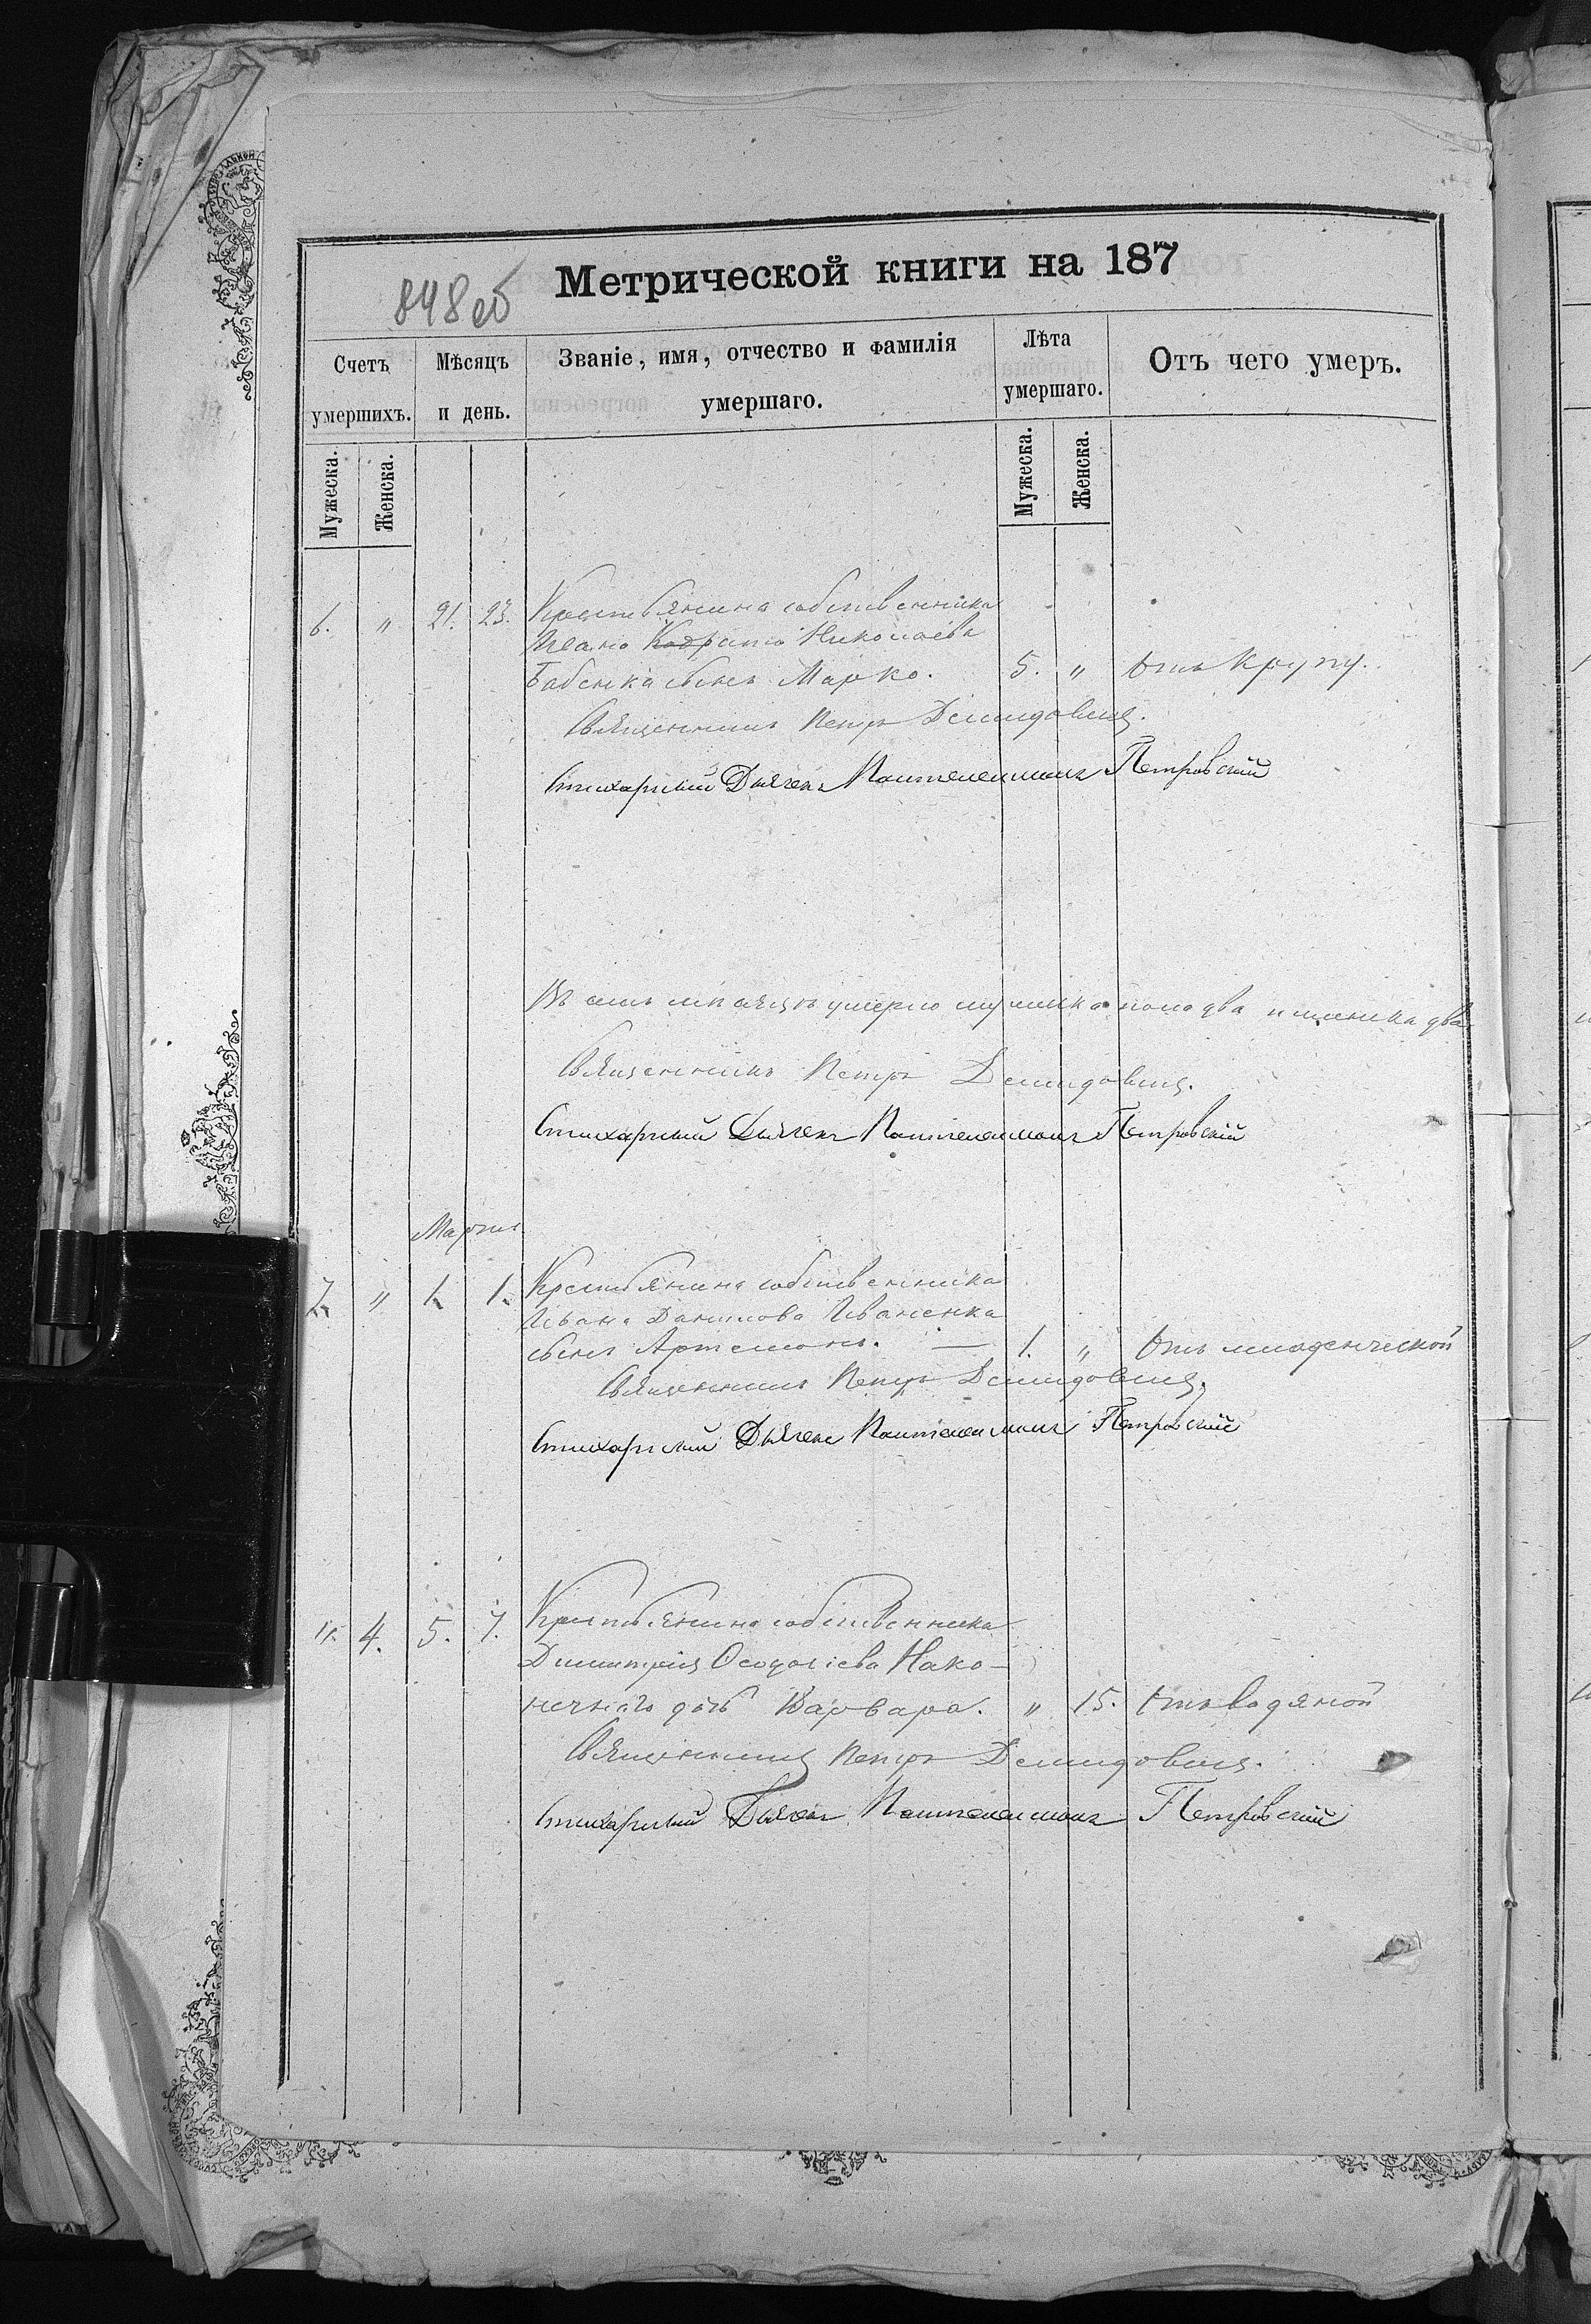 848 об
Метрической книги на 187
Счетъ умершихъ.
Мѣсяцъ и день.
Званіе, имя, отчество и фамилія умершаго.
Лѣта умершаго.
Отъ чего умеръ.
Мужеска. Женска. Мужеска. Женска.
6. " 21. 23. Крестьянина собственника
Ивана Николаева
Бабенка сынъ Марко. 5. " Отъ крупу.
Священникъ Петръ Демидовичъ.
Стихарный Дьячекъ Пантелеимонъ Петровскій
умерло мужеска пола два и женска два
Священникъ Петръ Демидовичъ.
Стихарный Дьячекъ Пантелеимонъ Петровскій
Мартъ.
7. " 1. 1. Крестьянина собственника
Ивана Данилова Иваненка
сынъ Артемонъ. — 1. " Отъ младенческой
Священникъ Петръ Демидовичъ.
Стихарный Дьячекъ Пантелеимонъ Петровскій
". 4. 5. 7. Крестьянина собственника
Димитрія Ѳеодосіева Нако-
нечнаго дочь Варвара. " 15. Отъ водяной
Священникъ Петръ Демидовичъ.
Стихарный Дьячекъ Пантелеимонъ Петровскій